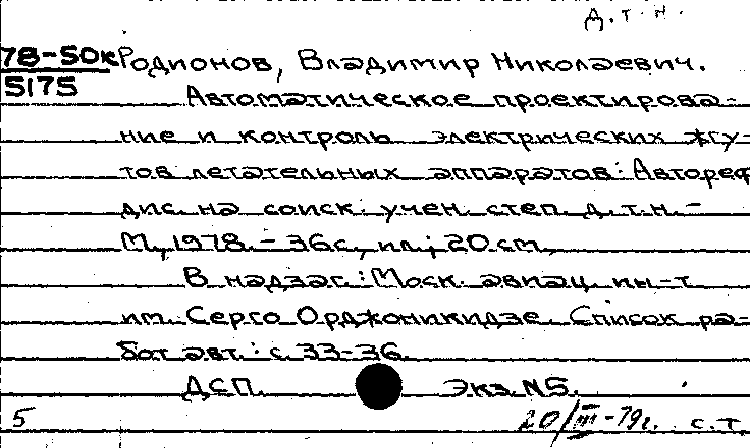 Д. т. н.
78-50к Родионов, Владимир Николаевич.
5175
Автоматическое проектирова-
ние и контроль электрических жгу-
тов летательных аппаратов: Автореф
дис. на соиск. учен. степ. д. т. н. -
М., 1978. - 36 с., ил.; 20 см.
В надзаг.: Моск. авиац. ин-т
им. Серго Орджоникидзе. Список ра-
бот авт.: с. 33-36.
ДСП. Экз. №5.
5 20/III-79г. с.т.